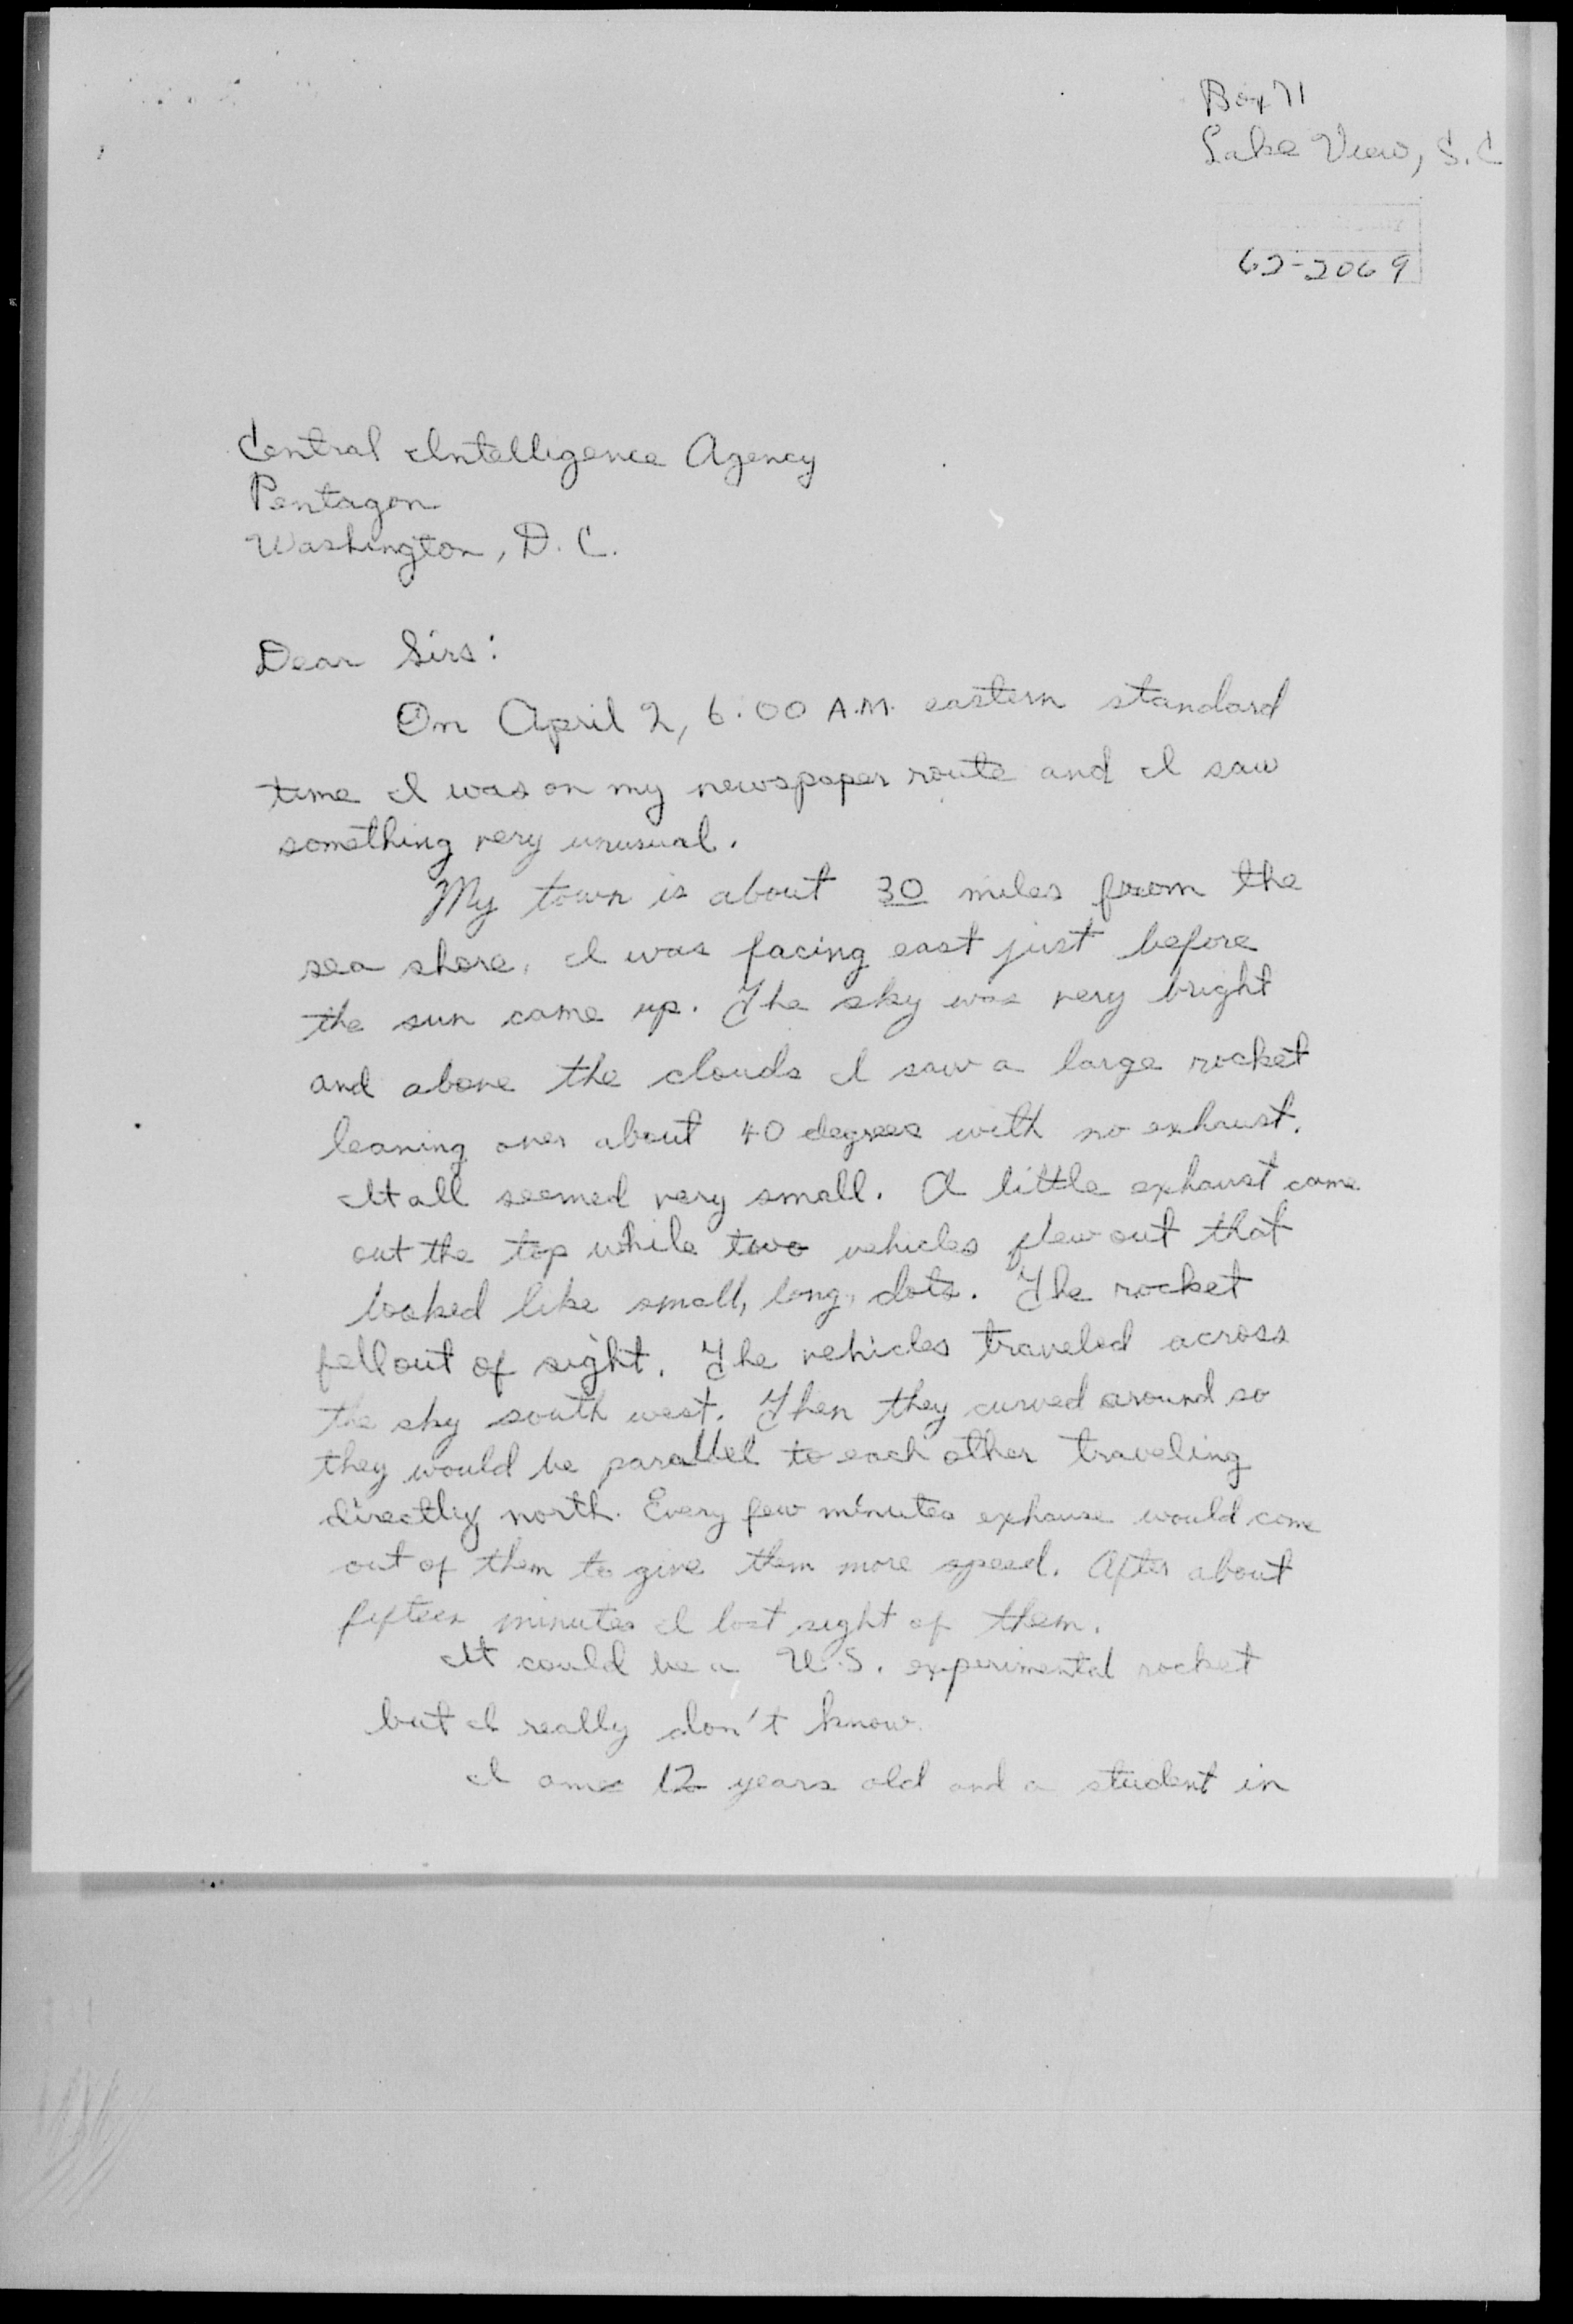 Box 71
Lake View, S.C
62-2069
Central Intelligence Agency
Pentagon
Washington, D.C.
Dear Sirs:
On April 2, 6:00 A.M. eastern standard
time I was on my newspaper route and I saw
something very unusual.
My town is about 30 miles from the
sea shore. I was facing east just before
the sun came up. The sky was very bright
and above the clouds I saw a large rocket
leaning over about 40 degrees with no exhaust.
It all seemed very small. A little exhaust came
out the top while two vehicles flew out that
looked like small, long, dots. The rocket
fell out of sight. The vehicles traveled across
the sky south west. Then they curved around so
they would be parallel to each other traveling
directly north. Every few minutes exhause would come
out of them to give them more speed. After about
fifteen minutes I lost sight of them.
It could be a U.S. experimental rocket
but I really don't know.
I am 12 years old and a student in